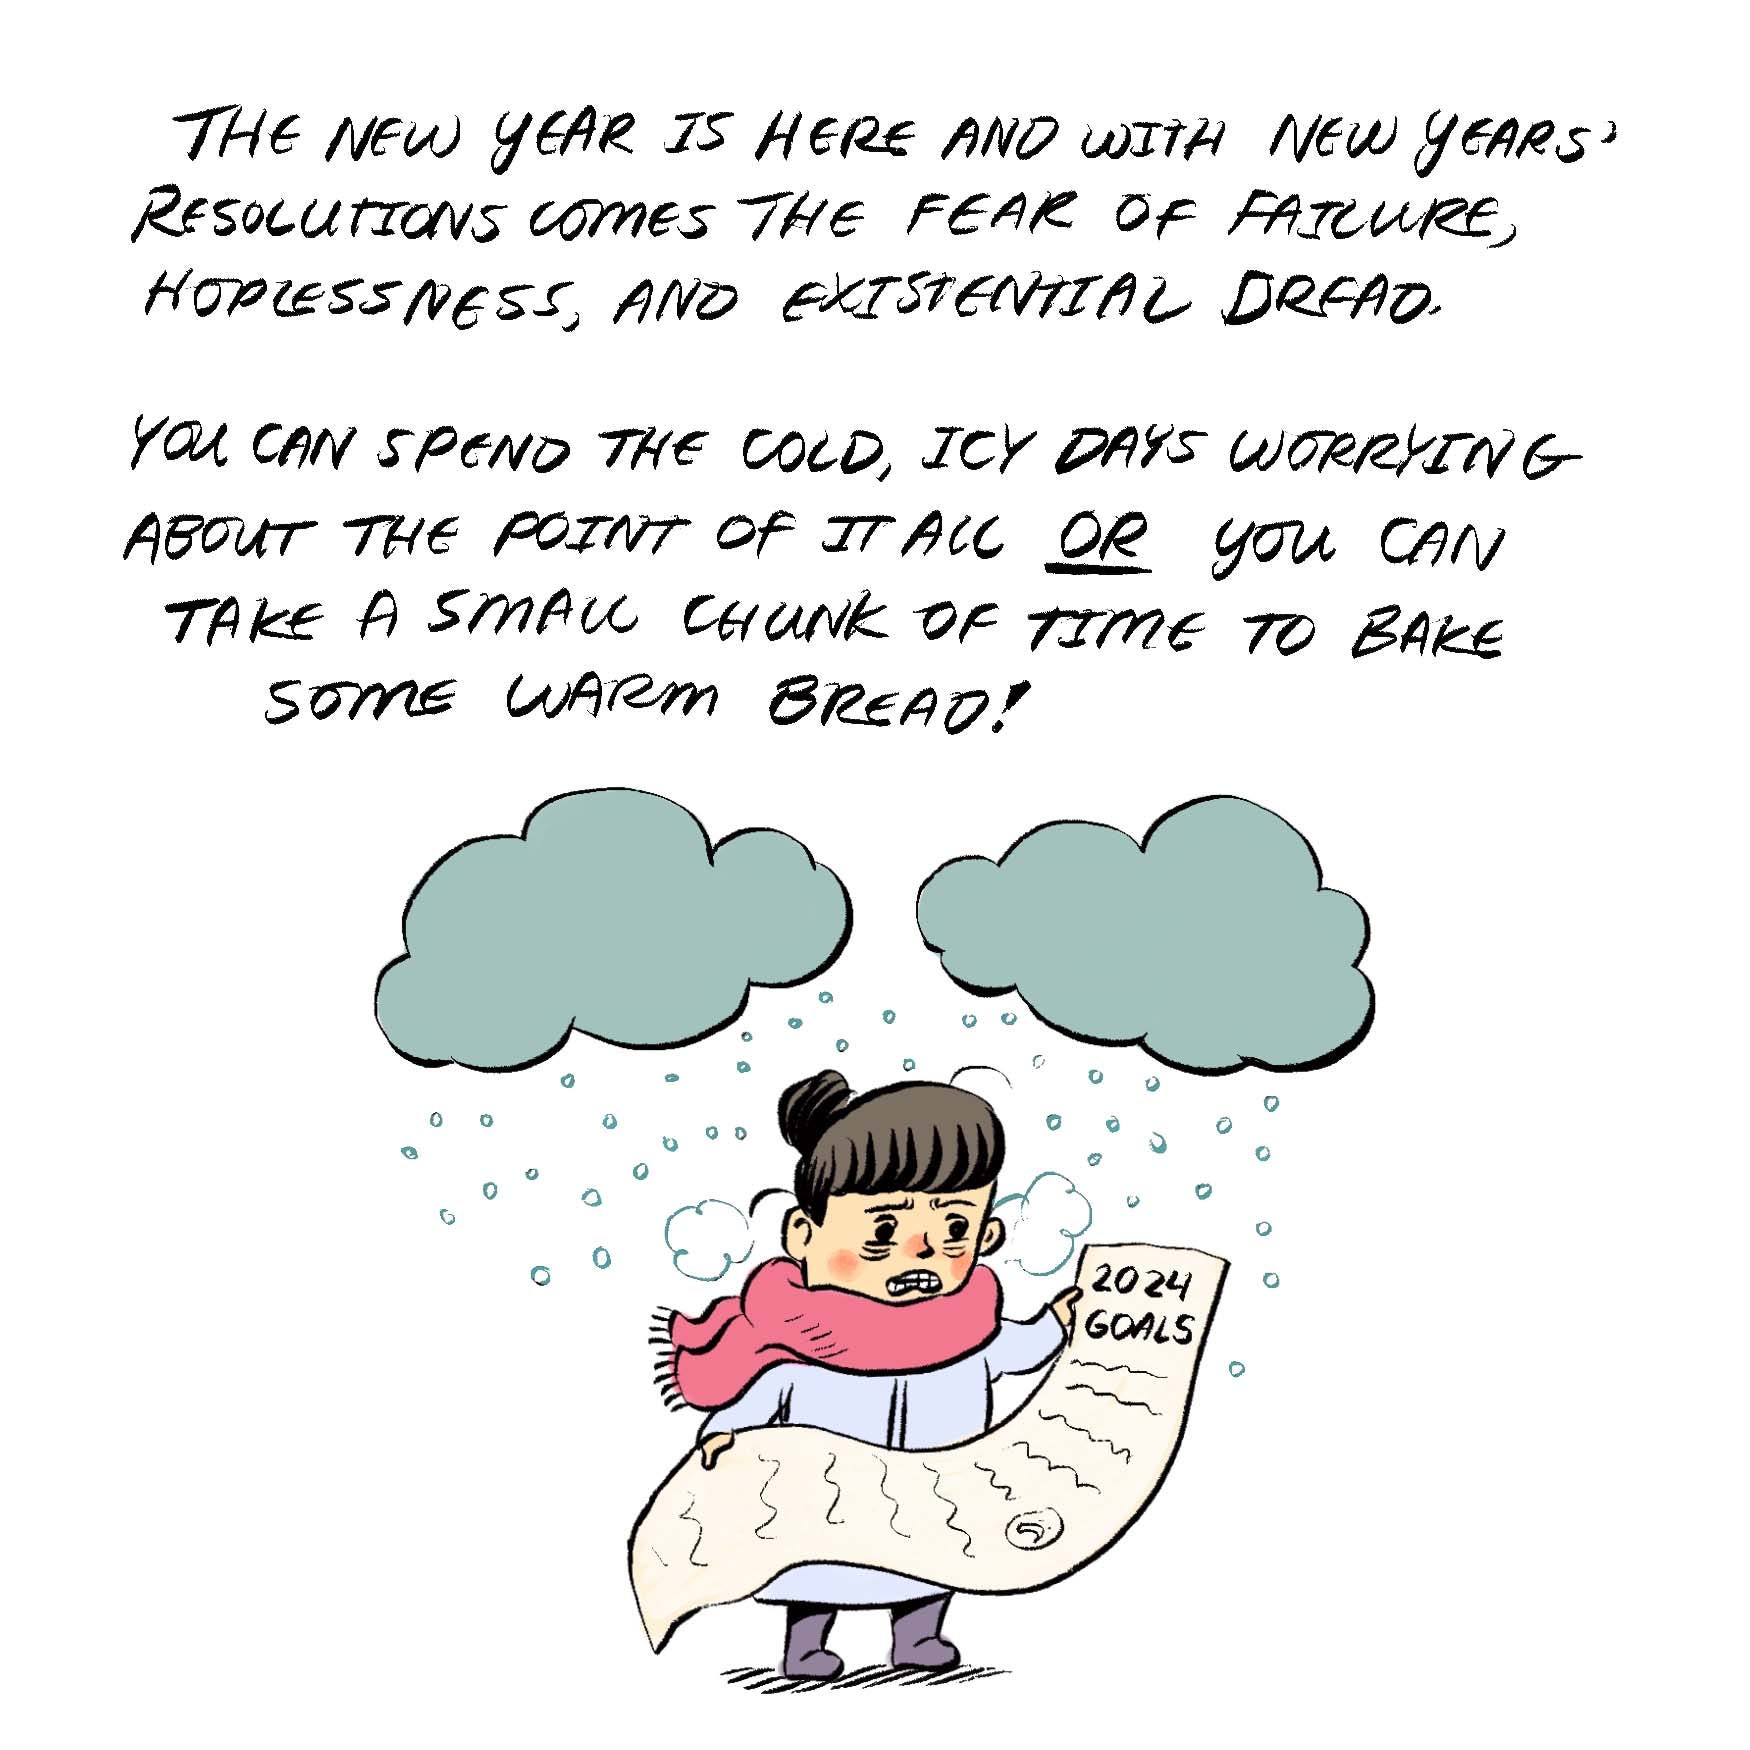 THE NEW YEAR IS HERE AND WITH NEW YEARS'
RESOLUTIONS COMES THE FEAR OF FAILURE,
HOPLESSNESS, AND EXISTENTIAL DREAD.
YOU CAN SPEND THE COLD, ICY DAYS WORRYING
ABOUT THE POINT OF IT ALL OR YOU CAN
TAKE A SMALL CHUNK OF TIME TO BAKE
SOME WARM BREAD!
2024
GOALS